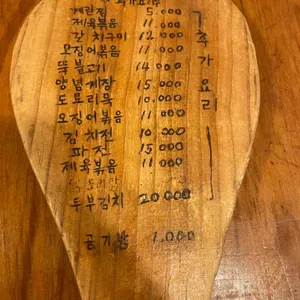 계란찜 5.000
제육볶음 11.000
갈치구이 12.000
오징어볶음 11.000
뚝불고기 14.000
양념게장 15.000
도토리묵 10.000
오징어볶음 11.000
김치전 10.000
파전 15.000
제육볶음 11.000
두부김치 20000
공기밥 1.000
추가요리